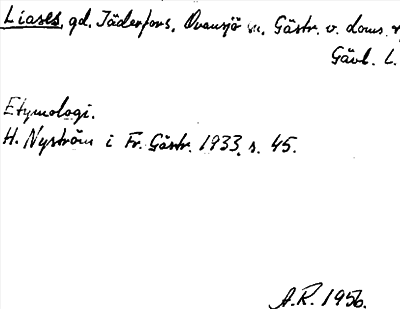 Liases, gd. Jäderfors, Ovansjö sn. Gästr. v. doms.
Gävl. L.
Etymologi.
H. Nyström i Fr. Gästr. 1933, s. 45.
A.R. 1956.